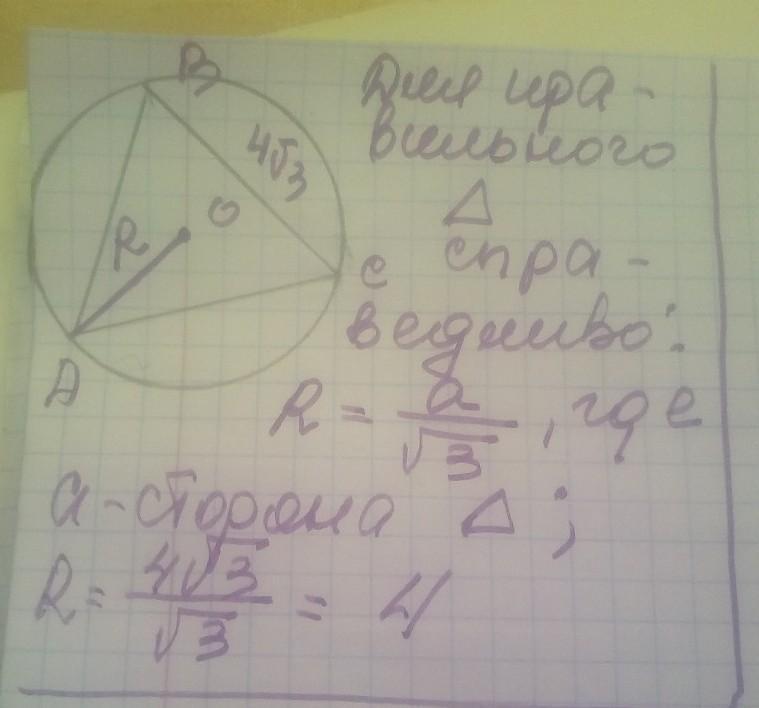 B
4√3
O
R
C
A
Для пра-
вильного
△
спра-
ведливо:
R = a/√3, где
a - сторона △;
R = 4√3/√3 = 4